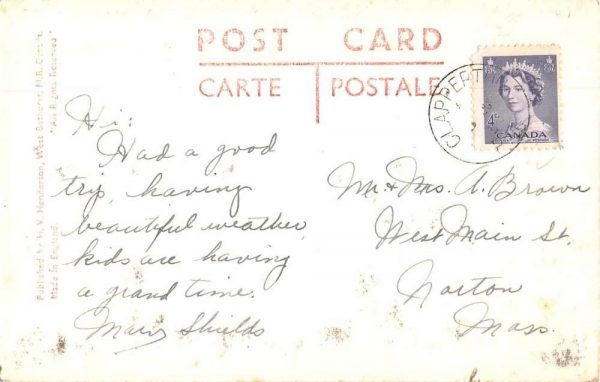 POST CARD
CARTE POSTALE
CLAPPERT
4¢
CANADA
Hi:
Had a good
trip, having
beautiful weather,
kids are having
a grand time.
Mary Shields
Mr & Mrs. A. Brown
West Main St.
Norton
Mass.
Published by H. V. Henderson, West Bathurst, N.B. Canada.
"All Rights Reserved"
Made in England.